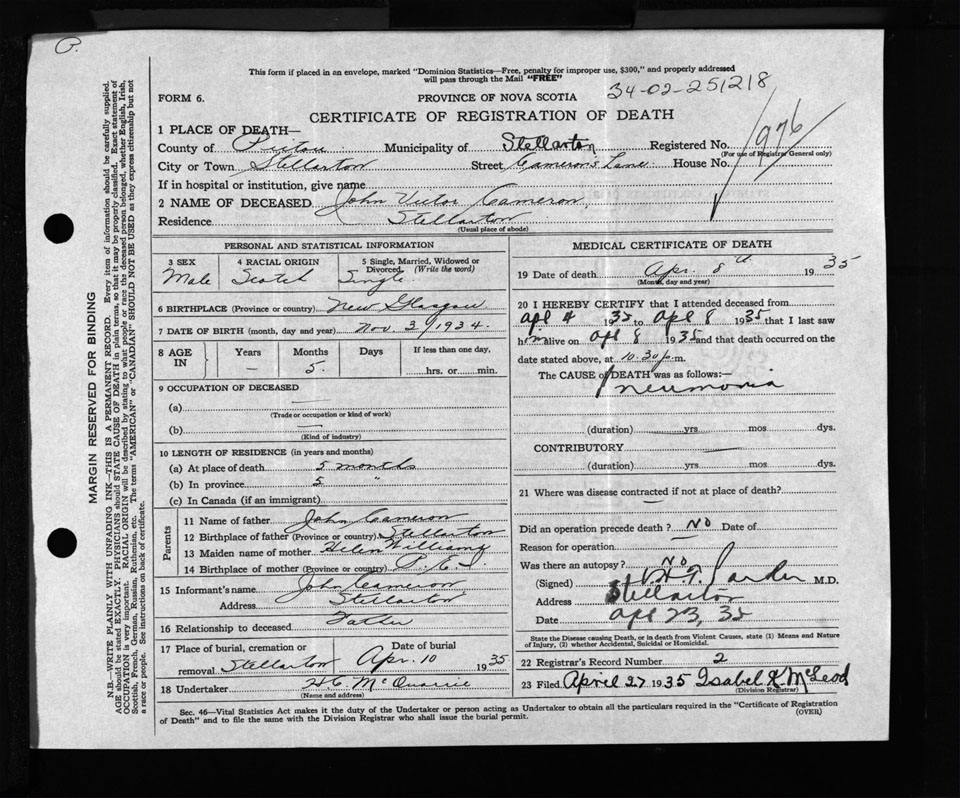 P.
This form if placed in an envelope, marked "Dominion Statistics—Free, penalty for improper use, $300," and properly addressed
will pass through the Mail "FREE"
34-02-251218
FORM 6.
PROVINCE OF NOVA SCOTIA
CERTIFICATE OF REGISTRATION OF DEATH
1 PLACE OF DEATH—
County of Pictou Municipality of Stellarton Registered No. 976
(For use of Registrar General only)
City or Town Stellarton Street Cameron's Lane House No.
If in hospital or institution, give name
2 NAME OF DECEASED John Victor Cameron
Residence Stellarton
(Usual place of abode)
PERSONAL AND STATISTICAL INFORMATION
3 SEX Male
4 RACIAL ORIGIN Scotch
5 Single, Married, Widowed or Divorced. (Write the word) Single
6 BIRTHPLACE (Province or country) New Glasgow
7 DATE OF BIRTH (month, day and year) Nov. 3/1934.
8 AGE IN Years — Months 5. Days If less than one day, hrs. or min.
9 OCCUPATION OF DECEASED
(a) —
(Trade or occupation or kind of work)
(b) —
(Kind of industry)
10 LENGTH OF RESIDENCE (in years and months)
(a) At place of death 5 months
(b) In province 5 "
(c) In Canada (if an immigrant)
Parents
11 Name of father John Cameron
12 Birthplace of father (Province or country) Stellarton
13 Maiden name of mother Helen Williams
14 Birthplace of mother (Province or country) P.E.I
15 Informant's name John Cameron
Address Stellarton
16 Relationship to deceased Father
17 Place of burial, cremation or removal Stellarton Date of burial Apr. 10 1935
18 Undertaker H C McQuarrie
(Name and address)
MEDICAL CERTIFICATE OF DEATH
19 Date of death Apr. 8th 1935
(Month, day and year)
20 I HEREBY CERTIFY that I attended deceased from
apl 4 1935 to apl 8 1935 that I last saw
him alive on apl 8 1935 and that death occurred on the
date stated above, at 10.30 p.m.
The CAUSE of DEATH was as follows:—
pneumonia
(duration) yrs mos dys.
CONTRIBUTORY —
(duration) yrs. mos. dys.
21 Where was disease contracted if not at place of death?
—
Did an operation precede death? No Date of
Reason for operation —
Was there an autopsy? No
(Signed) M.D.
Address Stellarton
Date apl 23, 35
State the Disease causing Death, or in death from Violent Causes, state (1) Means and Nature
of Injury, (2) whether Accidental, Suicidal or Homicidal.
22 Registrar's Record Number 2
23 Filed April 27 1935 Isabel K. McLeod
(Division Registrar)
Sec. 46—Vital Statistics Act makes it the duty of the Undertaker or person acting as Undertaker to obtain all the particulars required in the "Certificate of Registration
of Death" and to file the same with the Division Registrar who shall issue the burial permit.
(OVER)
MARGIN RESERVED FOR BINDING
N.B.—WRITE PLAINLY WITH UNFADING INK—THIS IS A PERMANENT RECORD. Every item of information should be carefully supplied.
AGE should be stated EXACTLY. PHYSICIANS should STATE CAUSE OF DEATH in plain terms, so that it may be properly classified. Exact statement of
OCCUPATION is very important. RACIAL ORIGIN will be described by stating to what people or race the deceased person belonged, whether English, Irish,
Scottish, French, German, Russian, Ruthenian, etc. The terms "AMERICAN" or "CANADIAN" SHOULD NOT BE USED as they express citizenship but not
a race or people. See instructions on back of certificate.